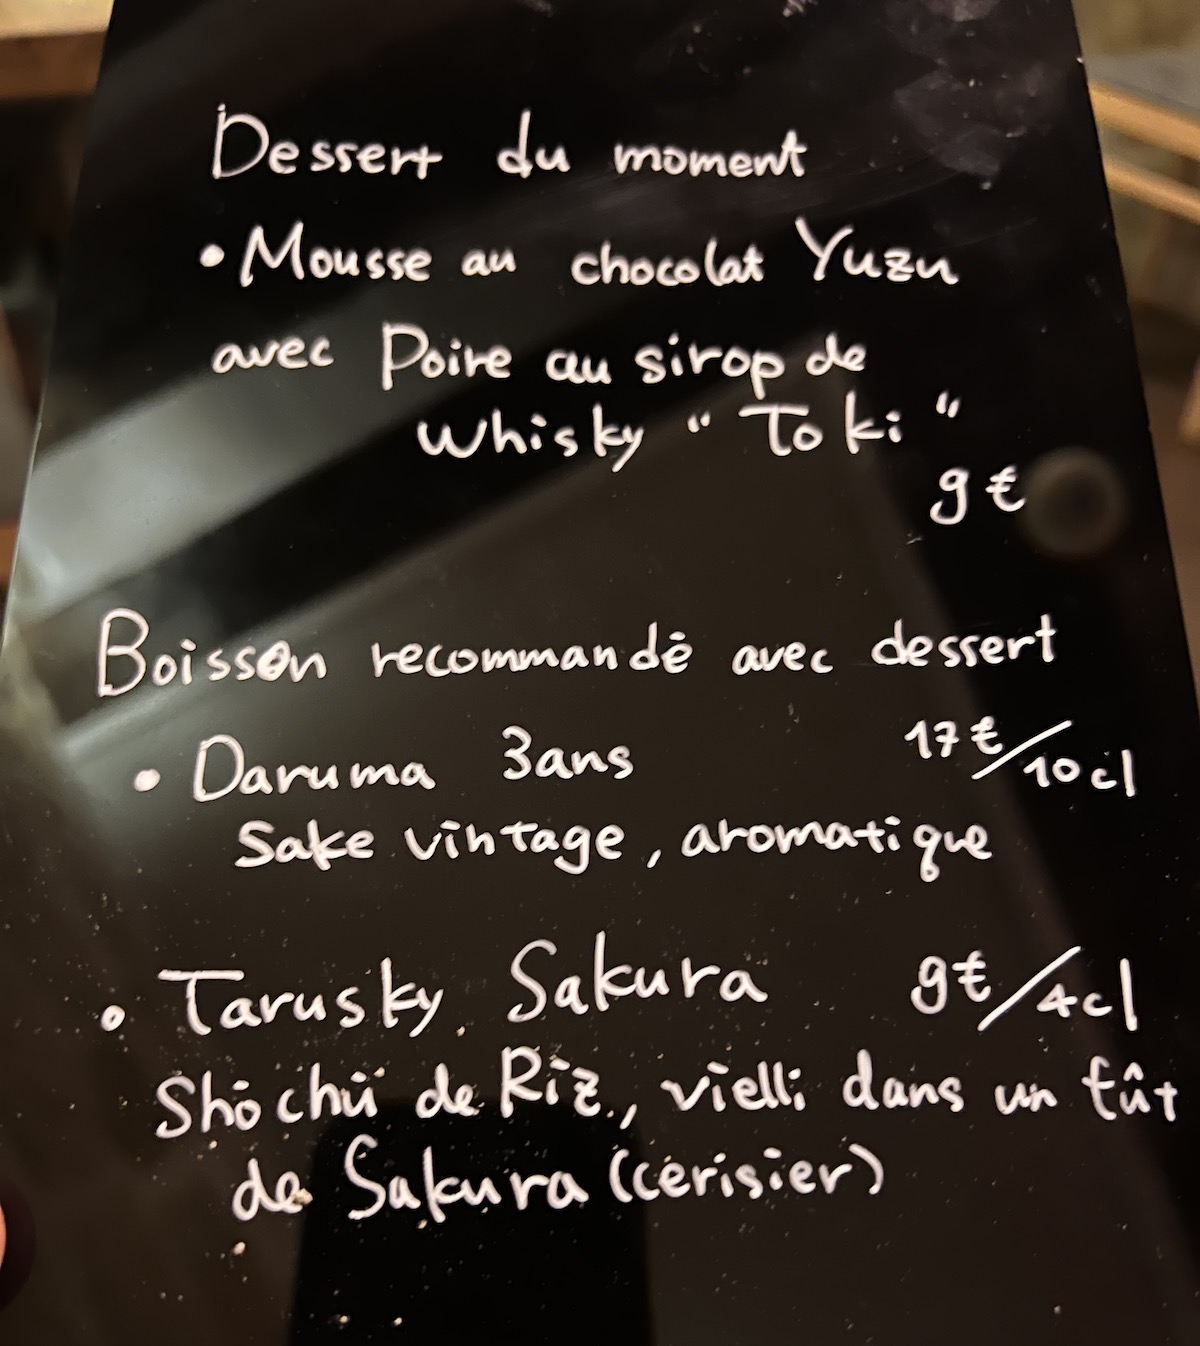 Dessert du moment
• Mousse au chocolat Yuzu
avec Poire au sirop de
Whisky “Toki”
9€
Boisson recommandé avec dessert
• Daruma 3ans 17€/10cl
Sake vintage, aromatique
• Tarusky Sakura 9€/4cl
Shōchū de Riz, vielli dans un fût
de Sakura (cerisier)